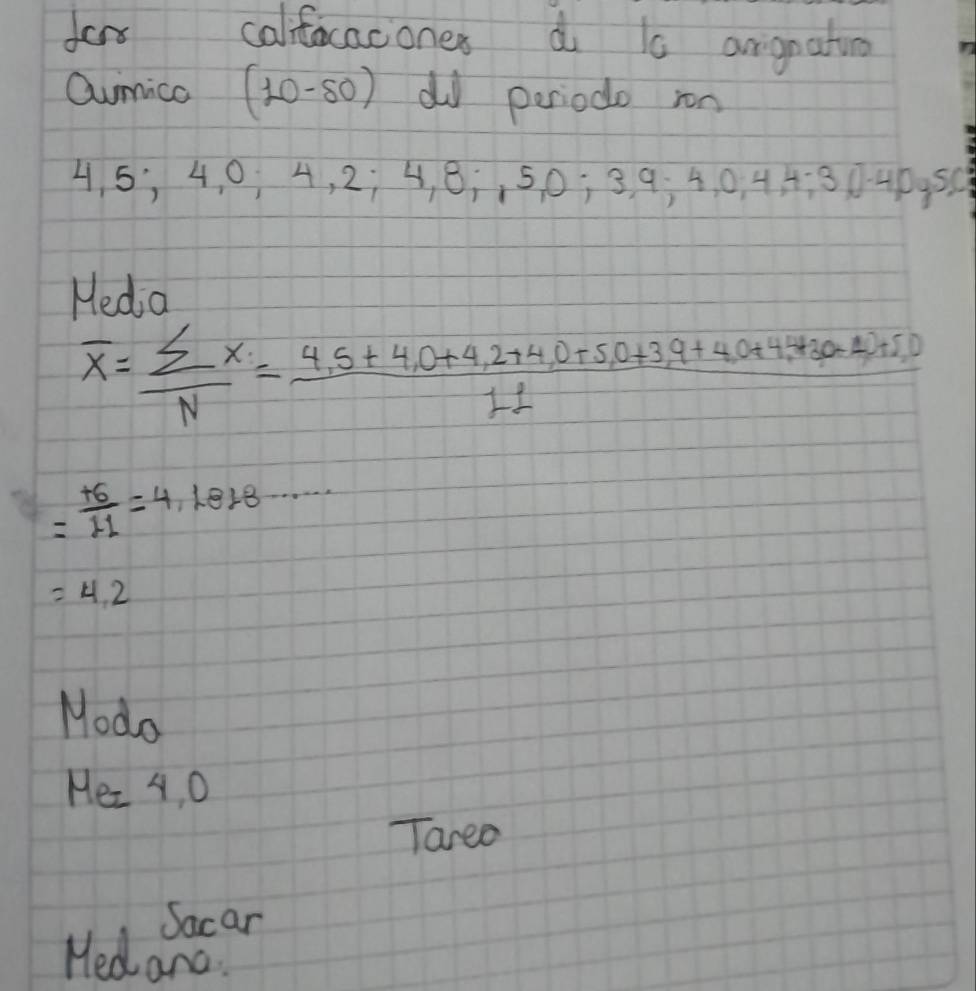 las calificaciones de la asignatura
Quimica (10-50) del periodo son
4,5; 4,0; 4,2; 4,8; , 5,0; 3,9; 4,0; 4,4; 3,0 4,0 y 5,0
Media
X̄ = Σx / N = 4,5+4,0+4,2+4,0+5,0+3,9+4,0+4,4+3,0+4,0+5,0 / 11
= 46/11 = 4,1818......
= 4,2
Moda
Me= 4,0
Tarea
Sacar
Mediana.